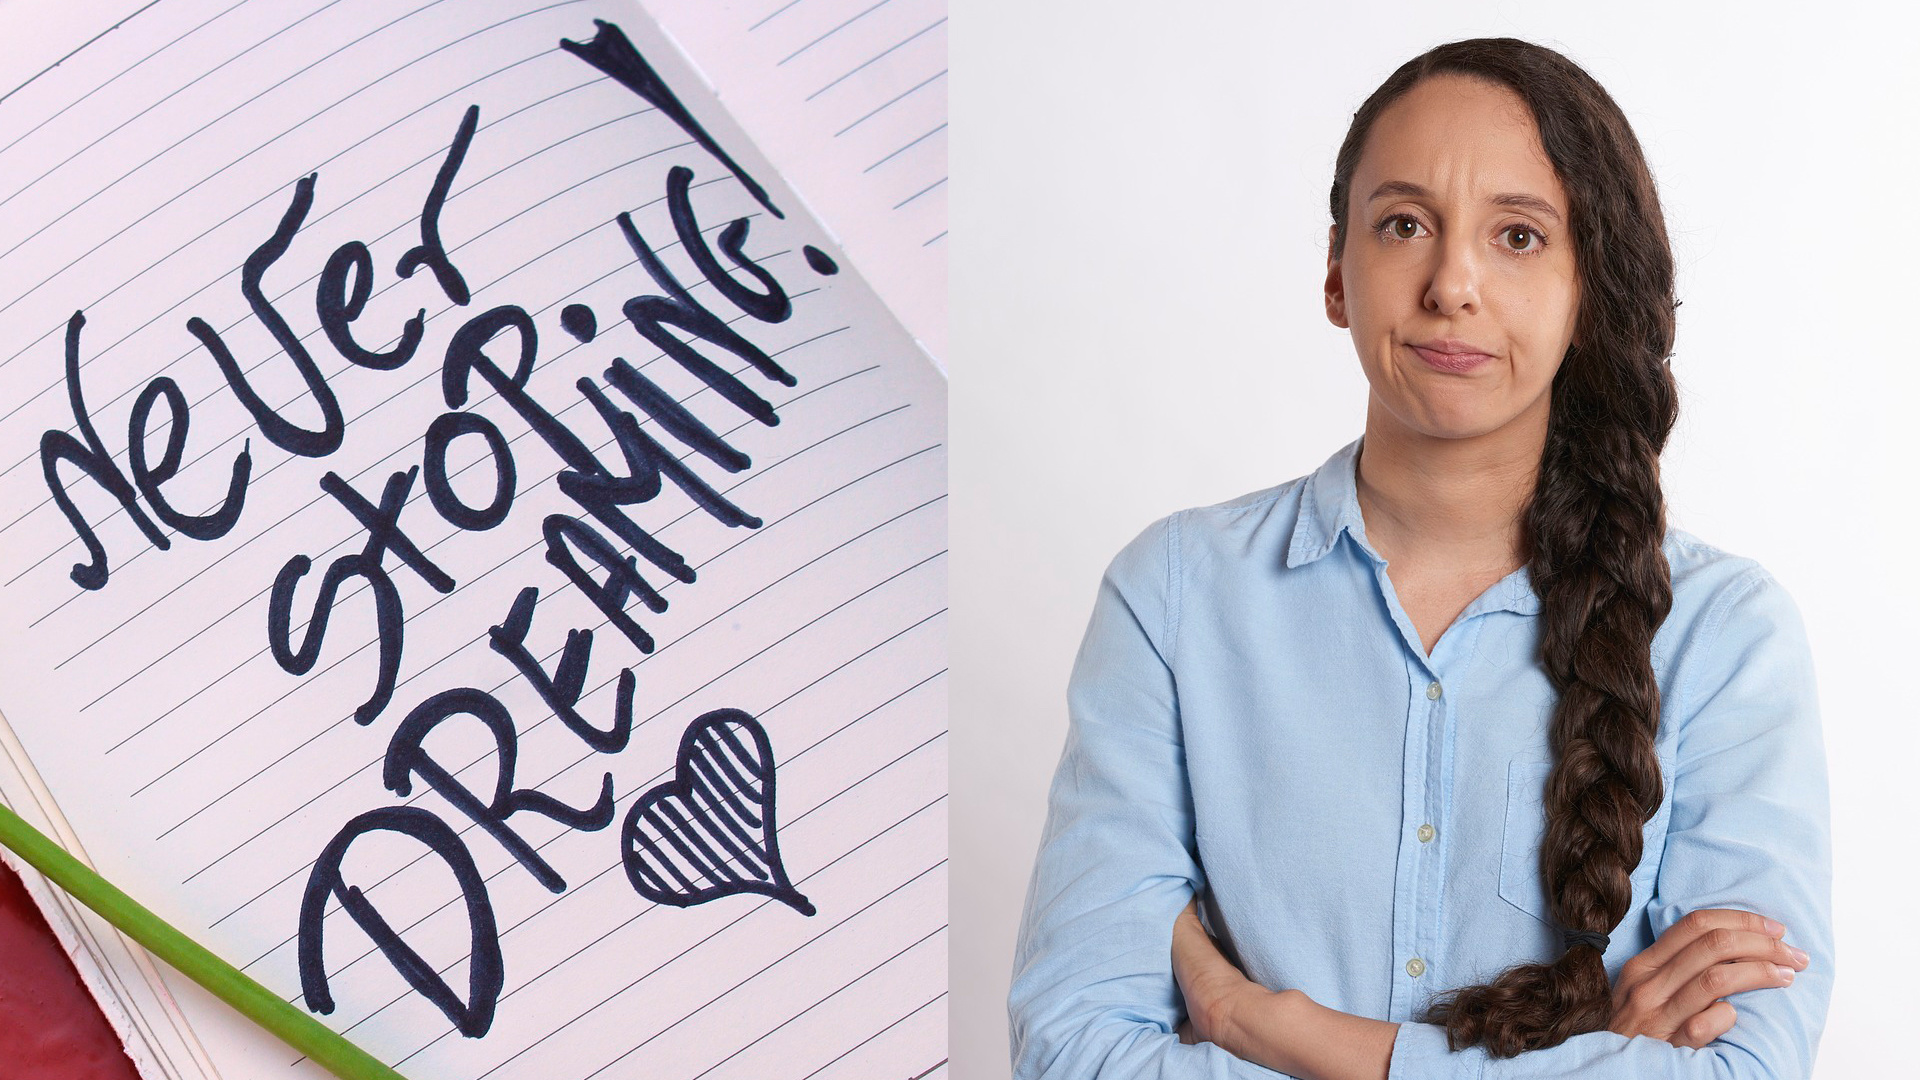 Never
stoping
DREAMING!